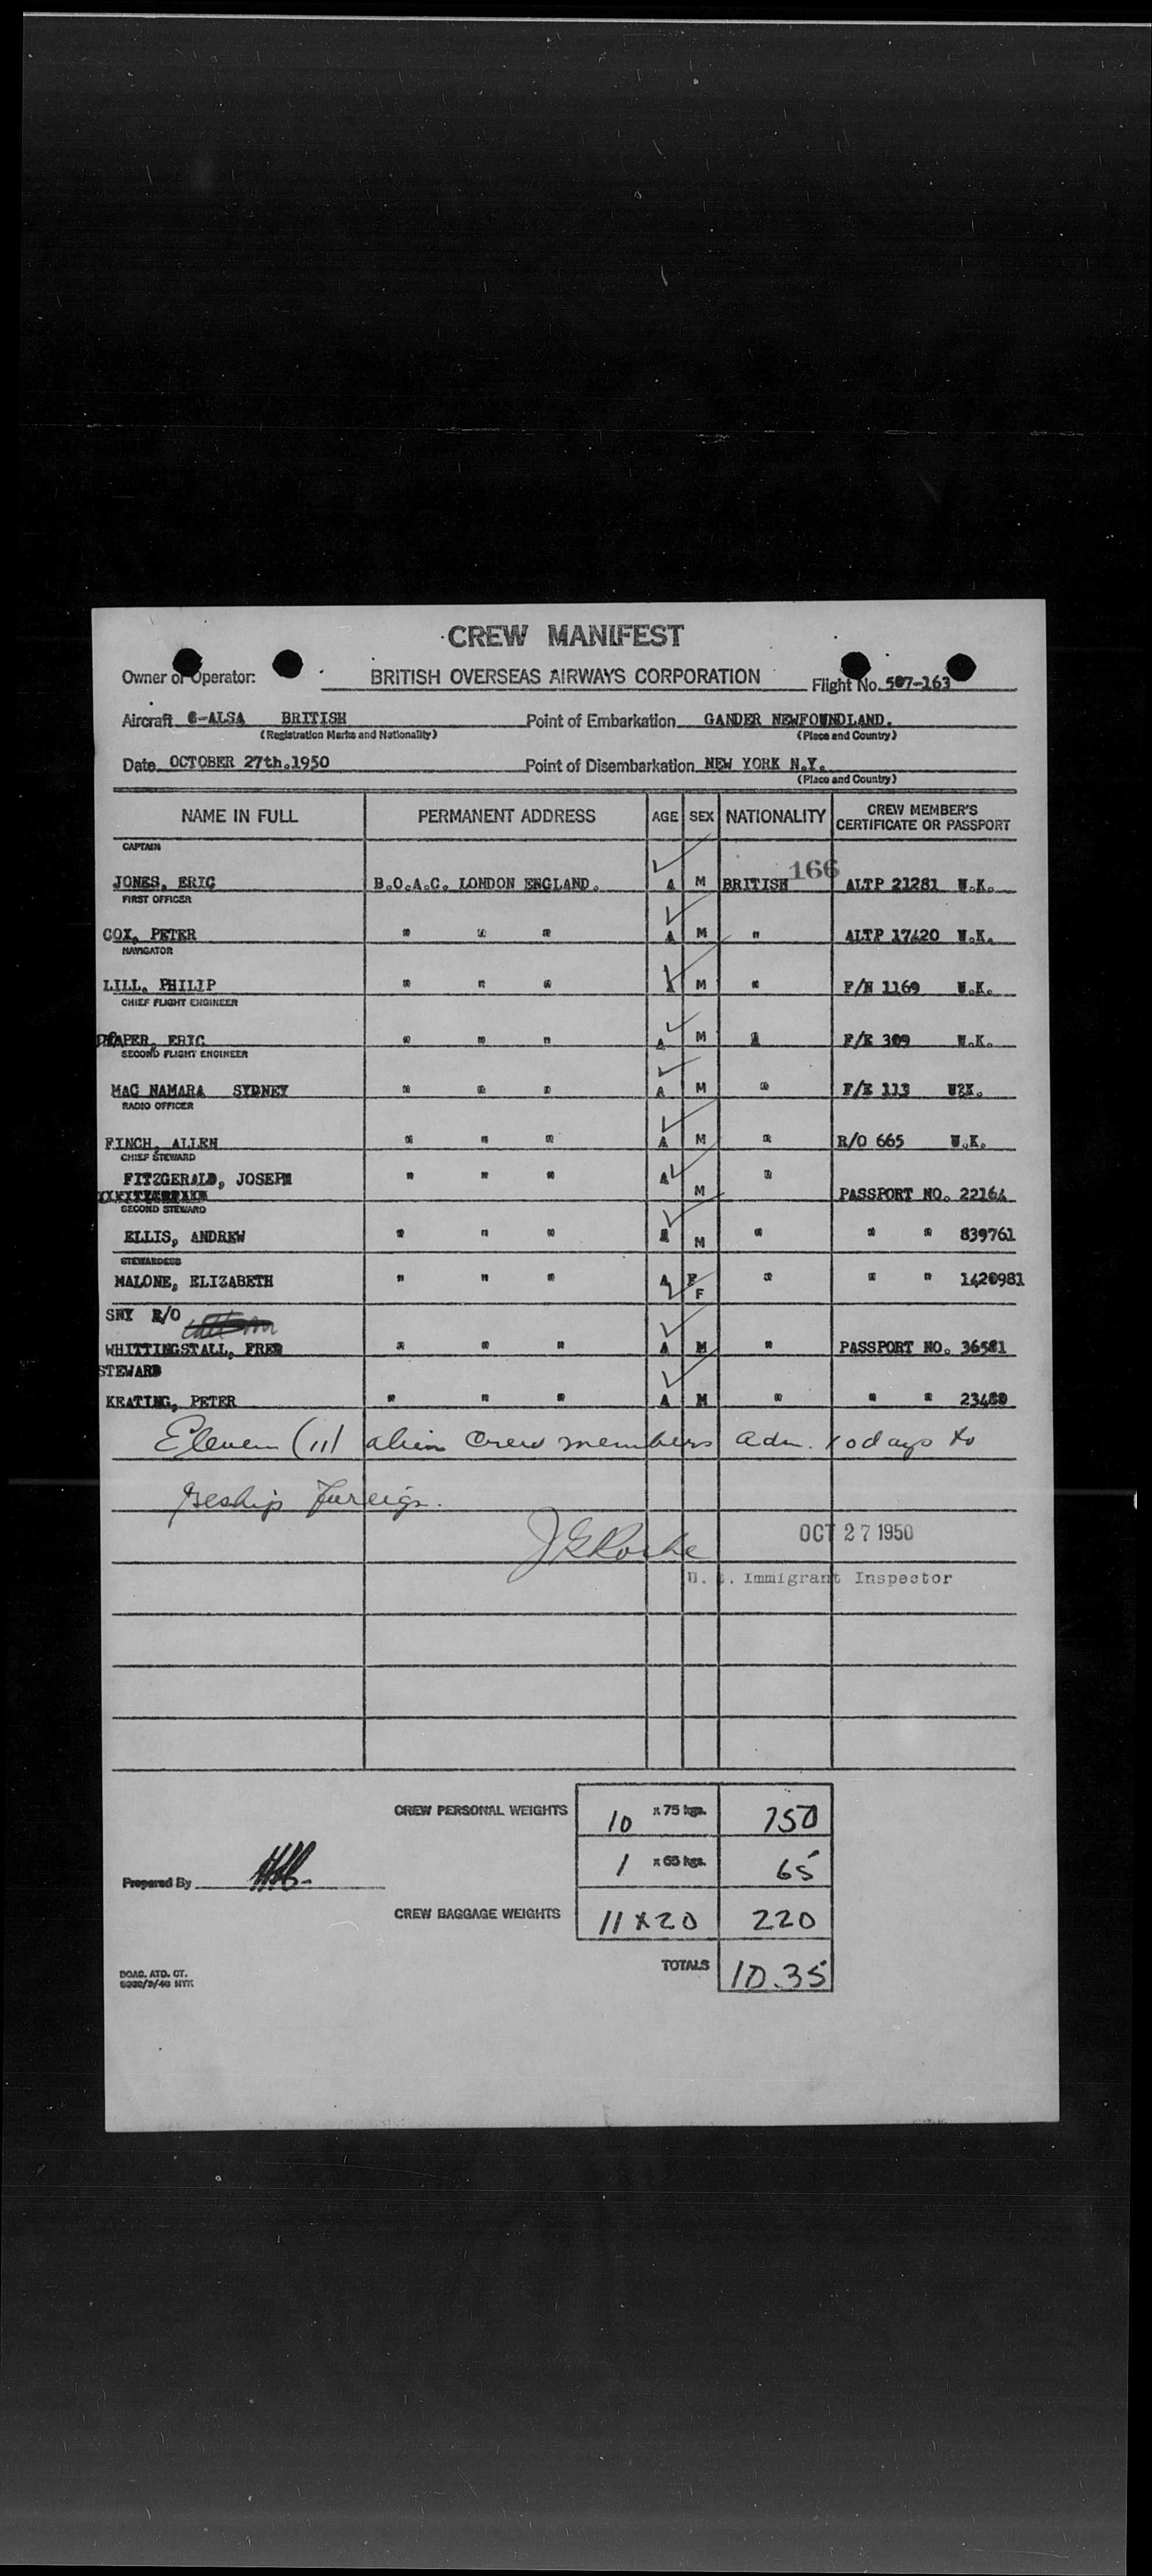 CREW MANIFEST
Owner or Operator: BRITISH OVERSEAS AIRWAYS CORPORATION Flight No. 507-163
Aircraft G-ALSA BRITISH Point of Embarkation GANDER NEWFOUNDLAND.
(Registration Marks and Nationality) (Place and Country)
Date OCTOBER 27th.1950 Point of Disembarkation NEW YORK N.Y.
(Place and Country)
NAME IN FULL PERMANENT ADDRESS AGE SEX NATIONALITY CREW MEMBER'S CERTIFICATE OR PASSPORT
CAPTAIN
166
JONES, ERIC B.O.A.C. LONDON ENGLAND. A M BRITISH ALTP 21281 U.K.
FIRST OFFICER
COX, PETER " " " A M " ALTP 17420 U.K.
NAVIGATOR
LILL, PHILIP " " " A M " F/N 1169 U.K.
CHIEF FLIGHT ENGINEER
DRAPER, ERIC " " " A M F/E 309 U.K.
SECOND FLIGHT ENGINEER
MAC NAMARA SYDNEY " " " A M " F/E 113 U?K.
RADIO OFFICER
FINCH, ALLEN " " " A M " R/O 665 U.K.
CHIEF STEWARD
FITZGERALD, JOSEPH " " " A M " PASSPORT NO. 22164
SECOND STEWARD
ELLIS, ANDREW " " " A M " " " 839761
STEWARDESS
MALONE, ELIZABETH " " " A F F " " " 1420981
SNY R/O
WHITTINGSTALL, FRED " " " A M " PASSPORT NO. 36581
STEWARD
KEATING, PETER " " " A M " " " 23480
Eleven (11) alien crew members adm. 10 days to
reship foreign.
J G Roche OCT 27 1950
U. S. Immigrant Inspector
CREW PERSONAL WEIGHTS 10 x 75 kgs. 750
1 x 65 kgs. 65
Prepared By
CREW BAGGAGE WEIGHTS 11 x 20 220
TOTALS 10.35
BOAC. ATD. CT.